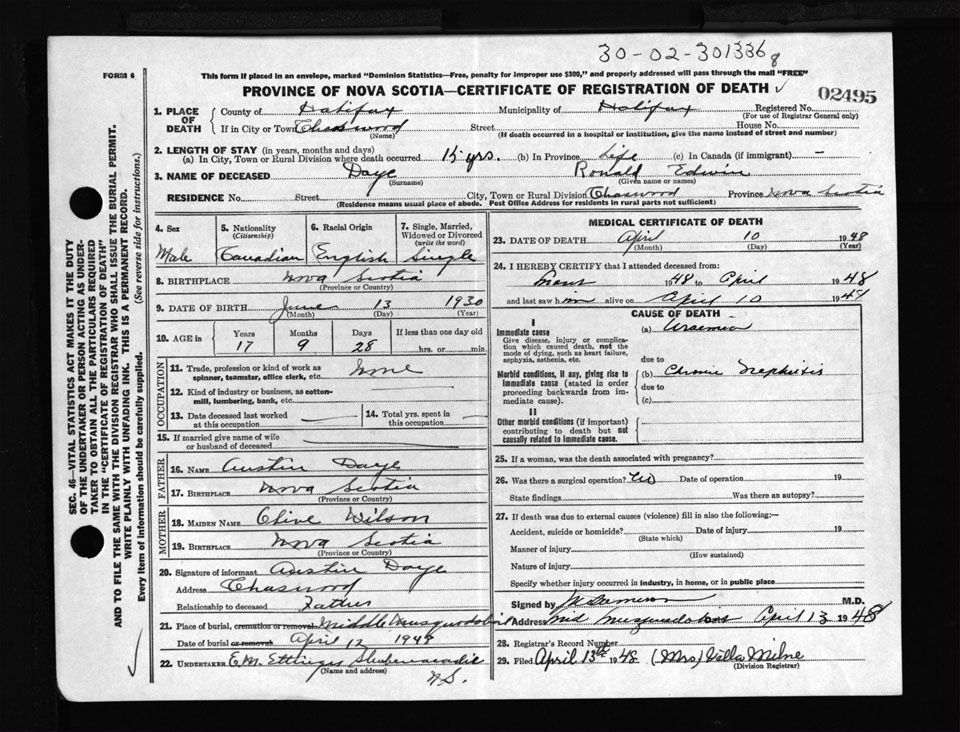 30-02-301336
8
FORM 6
This form if placed in an envelope, marked "Dominion Statistics—Free, penalty for improper use $300," and properly addressed will pass through the mail "FREE"
PROVINCE OF NOVA SCOTIA—CERTIFICATE OF REGISTRATION OF DEATH ✓
02495
1. PLACE OF DEATH County of Halifax Municipality of Halifax Registered No.
(For use of Registrar General only)
If in City or Town Chaswood Street House No.
(Name) (If death occurred in a hospital or institution, give the name instead of street and number)
2. LENGTH OF STAY (in years, months and days)
(a) In City, Town or Rural Division where death occurred yrs. (b) In Province Life (c) In Canada (if immigrant) —
3. NAME OF DECEASED Daye Ronald Edwin
(Surname) (Given name or names)
RESIDENCE No. Street City, Town or Rural Division Chaswood Province Nova Scotia
(Residence means usual place of abode. Post Office Address for residents in rural parts not sufficient)
4. Sex 5. Nationality (Citizenship) 6. Racial Origin 7. Single, Married, Widowed or Divorced (write the word)
Male Canadian English Single
8. BIRTHPLACE Nova Scotia
(Province or Country)
9. DATE OF BIRTH June 13 1930
(Month) (Day) (Year)
10. AGE in Years Months Days If less than one day old
17 9 28 hrs. or min.
OCCUPATION
11. Trade, profession or kind of work as spinner, teamster, office clerk, etc. None
12. Kind of industry or business, as cotton-mill, lumbering, bank, etc.
13. Date deceased last worked at this occupation 14. Total yrs. spent in this occupation
15. If married give name of wife or husband of deceased
FATHER
16. NAME Austin Daye
17. BIRTHPLACE Nova Scotia
(Province or Country)
MOTHER
18. MAIDEN NAME Olive Wilson
19. BIRTHPLACE Nova Scotia
(Province or Country)
20. Signature of informant Austin Daye
Address Chaswood
Relationship to deceased Father
21. Place of burial, cremation or removal Middle Musquodoboit
Date of burial or removal April 12 1948
22. UNDERTAKER E.M. Ettinger Shubenacadie
(Name and address)
N.S.
MEDICAL CERTIFICATE OF DEATH
23. DATE OF DEATH April 10 1948
(Month) (Day) (Year)
24. I HEREBY CERTIFY that I attended deceased from:
1948 to April 1948
and last saw him alive on April 10 194
CAUSE OF DEATH
I
Immediate cause
Give disease, injury or complication which caused death, not the mode of dying, such as heart failure, asphyxia, asthenia, etc.
(a) Uraemia
due to
Morbid conditions, if any, giving rise to immediate cause (stated in order proceeding backwards from immediate cause).
(b) Chronic Nephritis
due to
(c)
II
Other morbid conditions (if important) contributing to death but not causally related to immediate cause.
25. If a woman, was the death associated with pregnancy?
26. Was there a surgical operation? No Date of operation 19
State findings Was there an autopsy?
27. If death was due to external causes (violence) fill in also the following:—
Accident, suicide or homicide? Date of injury 19
(State which)
Manner of injury
(How sustained)
Nature of injury
Specify whether injury occurred in industry, in home, or in public place
Signed by M.D.
Address Mid Musquodoboit April 13 1948
28. Registrar's Record Number
29. Filed April 13th 1948 (Mrs) Villa Milne
(Division Registrar)
SEC. 46—VITAL STATISTICS ACT MAKES IT THE DUTY
OF THE UNDERTAKER OR PERSON ACTING AS UNDER-
TAKER TO OBTAIN ALL THE PARTICULARS REQUIRED
IN THE "CERTIFICATE OF REGISTRATION OF DEATH"
AND TO FILE THE SAME WITH THE DIVISION REGISTRAR WHO SHALL ISSUE THE BURIAL PERMIT.
WRITE PLAINLY WITH UNFADING INK. THIS IS A PERMANENT RECORD.
Every item of information should be carefully supplied. (See reverse side for instructions.)